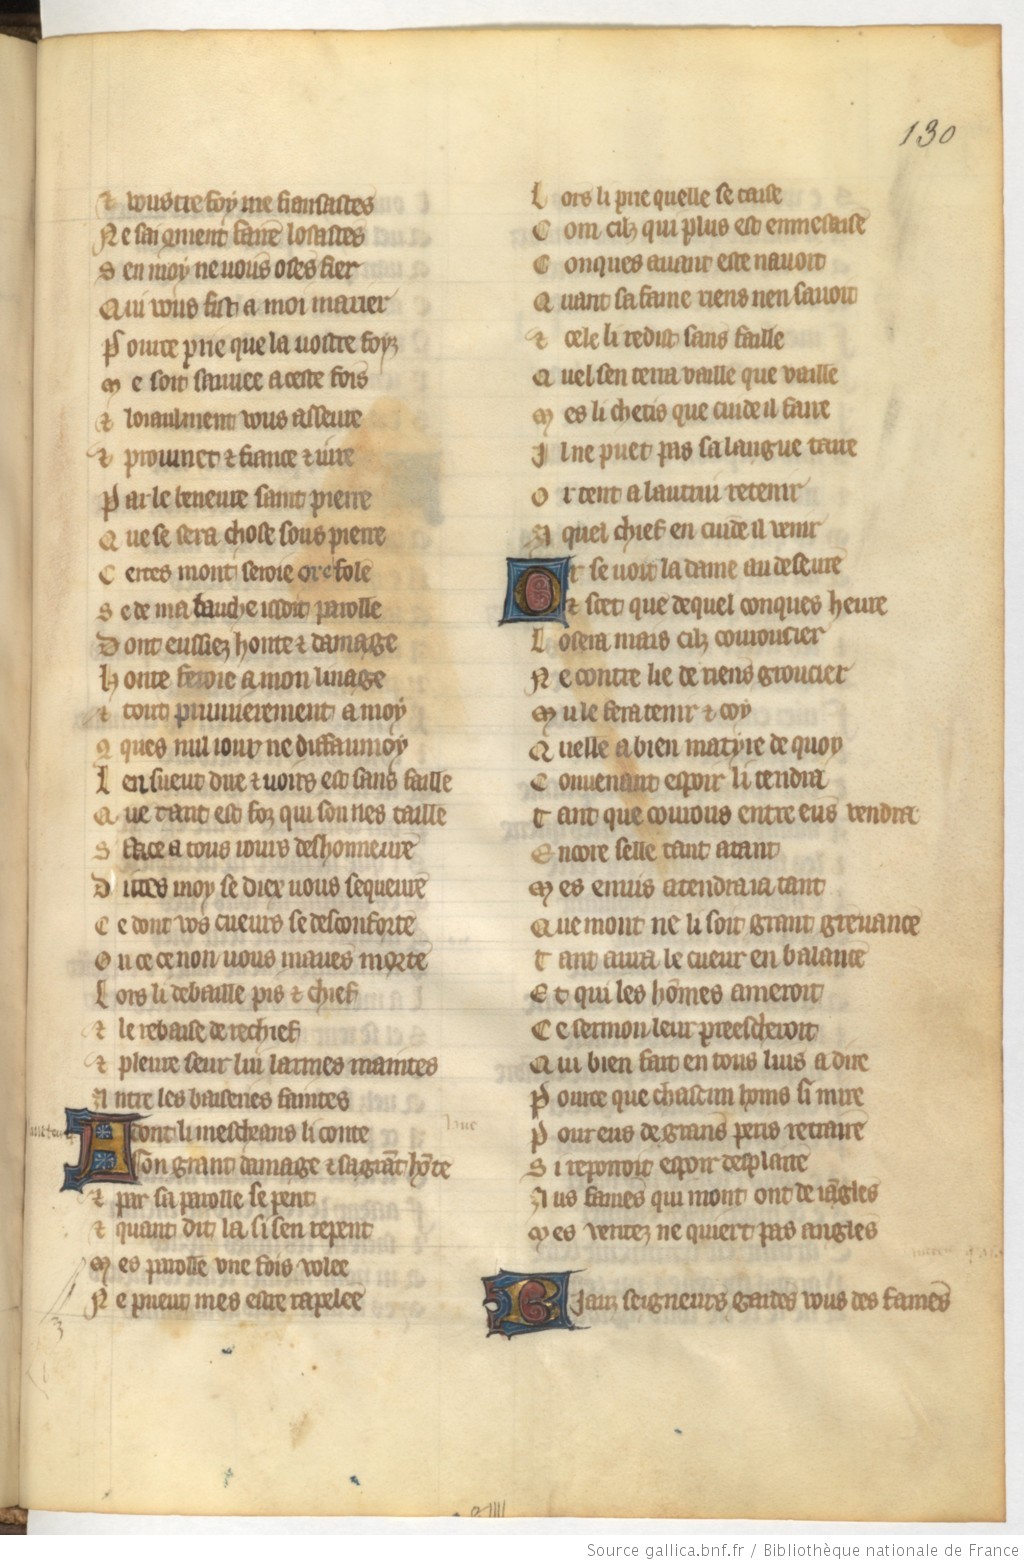 130
⁊ vous tre foy me fiansastes
Ne sai gment faire losastes
S en moy ne vous oses fier
Qui vous fist a moi marier
P ource prie que la vostre foyz
M e soit sauuee a ceste fois
⁊ loiaulment vous asseure
⁊ prommet ⁊ fiance ⁊ iure
P ar le beneure saint pierre
Q ue se sera chose sous pierre
C ertes mont seroie ore fole
S e de ma bouche issoit parolle
D ont eussiez honte ⁊ damage
H onte feroie a mon linage
⁊ tout premierement a moy
Q ques nul iour ne diffamoy
L en sueut dire ⁊ voirs est sans faille
Q ue tant est foz qui son nes taille
S a face a tous iours deshonneure
D ittes moy se diex vous sequeure
C e dont vos cueurs se desconforte
O u ce ce non vous maues morte
L ors li debaille pis ⁊ chief
⁊ le rebaise de rechief
⁊ pleure seur lui larmes maintes
A ntre les baiseries faintes
A dont li mescheans li conte
Son grant damage ⁊ sa grāt hōte
⁊ par sa parolle se pent
⁊ quant dit la si sen repent
M es parolle vne fois volee
N e pueut mes estre rapelee
L ors li prie quelle se taise
C om cilz qui plus est enmesaise
C onques auant este nauoit
Q uant sa fame riens nen sauoit
⁊ cele li redist sans faille
Q uel sen terra vaille que vaille
M es li chetis que cuide il faire
I l ne puet pas sa langue taire
O r tent a lautrui retenir
A quel chief en cuide il venir
Or se voit la dame au deseure
⁊ scet que de quel conques heure
L osera mais cilz couroucier
N e contre lie de riens groucier
M u le fera tenir ⁊ coy
Q uelle a bien matyre de quoy
C onuenant espoir li tendra
T ant que courous entre eus vendra
E ncore selle tant atant
M es enuis atendra ia tant
Q ue mont ne li soit grant greuance
T ant aura le cueur en balance
E t qui les hōmes ameroit
C e sermon leur preescheroit
Q ui bien fait en tous luis a dire
P ource que chascun homs si mire
P our eus de grans peris retraire
S i reporroit espoir desplaire
A us fames qui mont ont de iāgles
M es veritez ne quiert pas angles
Biauz seigneurs gardes vous des fames
Source gallica.bnf.fr / Bibliothèque nationale de France